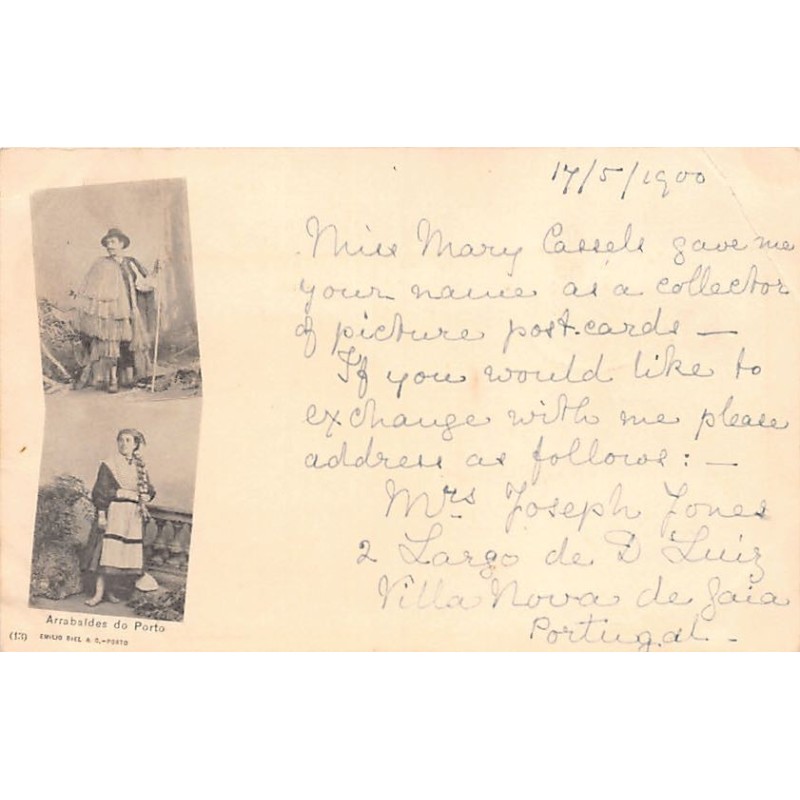 17/5/1900
Miss Mary Cassels gave me
your name as a collector
of picture post-cards —
If you would like to
exchange with me please
address as follows: —
Mrs Joseph Jones
2 Largo de D Luiz
Villa Nova de Gaia
Portugal -
Arrabaldes do Porto
(13) EMILIO BIEL & C.-PORTO